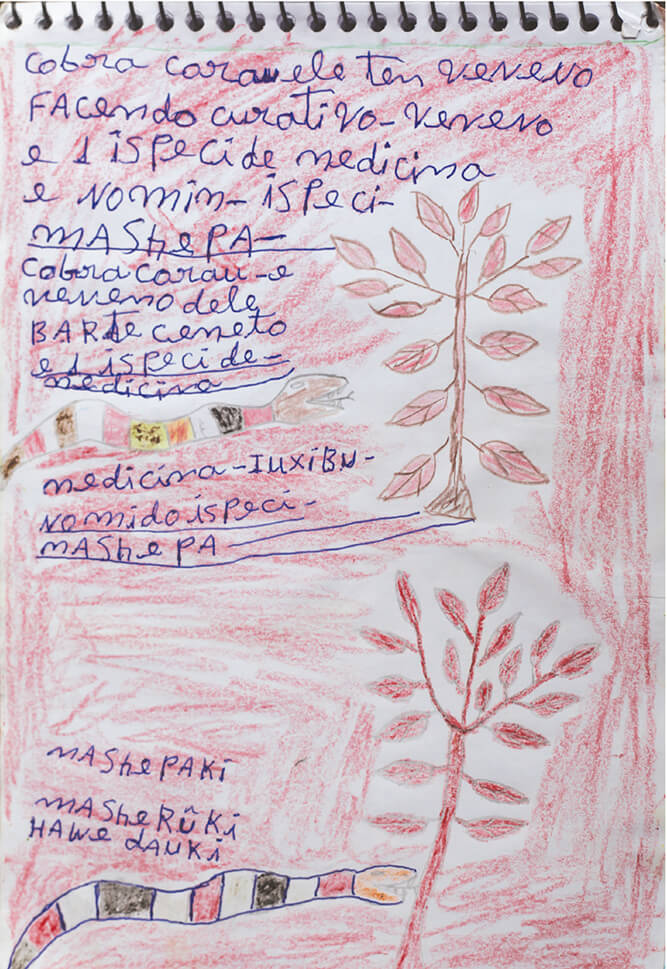 cobra corau ele ten veneno
FACendo curativo-veneno
e 1 ispeci de medicina
e nomin-ispeci-
MAShePA-
cobra corau-e
veneno dele
BARte ceneto
e 1 ispeci de-
medicina
medicina-IUXIBU-
nomi do ispeci-
MAShePA
MAShePAKi
MASheRÛKi
HAWe dAUKi